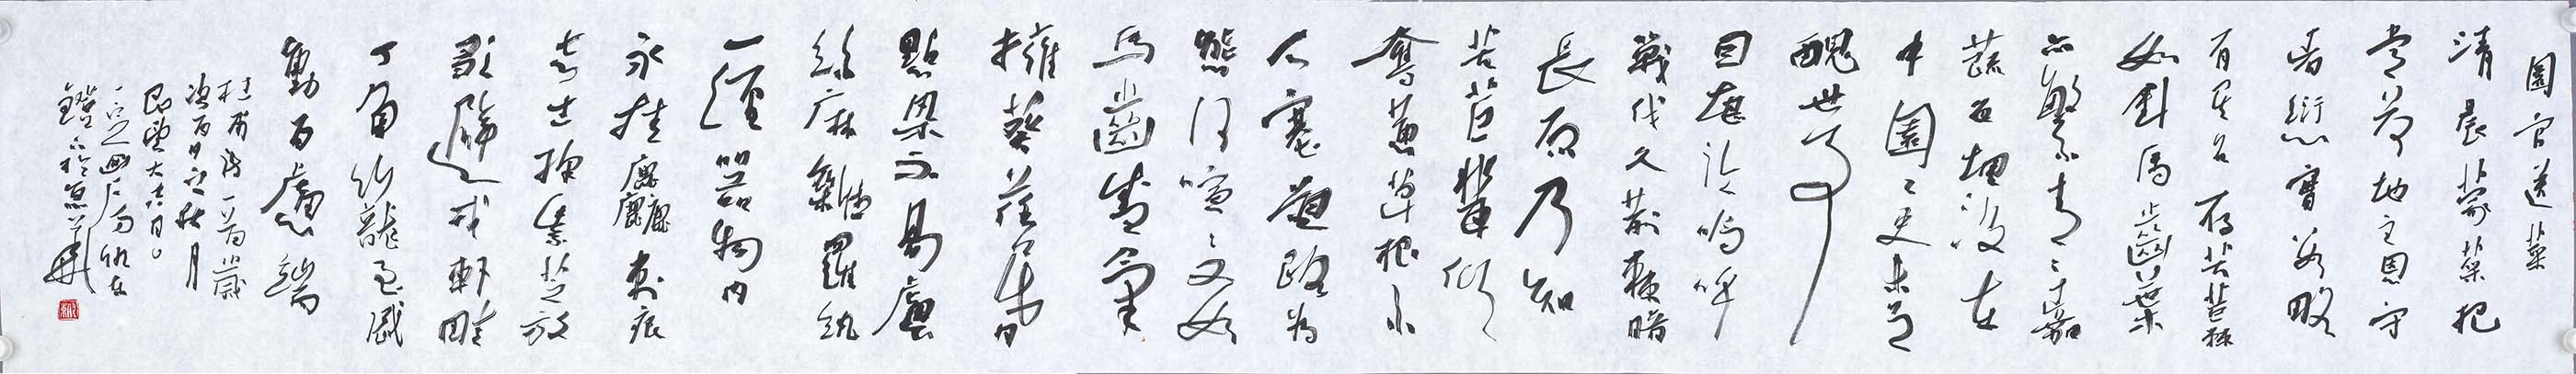 園官送菜
清晨蒙菜把
常荷地主恩守
者愆實數略
有其名存苦苣刺
如針馬齒葉
亦繁青〻嘉
蔬色埋沒在
中園〻吏未足
世事
固堪論嗚呼
戰伐久荊棘暗
長原乃知
苦苣輩傾
奪蕙草根小
人塞道路為
態何喧〻又如
馬齒盛氣
擁葵荏昏
點染不易虞
絲麻雜羅紈
一經器物內
永挂麤刺痕
志士採紫芝放
歌避戎軒畦
丁負籠至感
動百慮端
杜甫詩一首歲
次之秋月